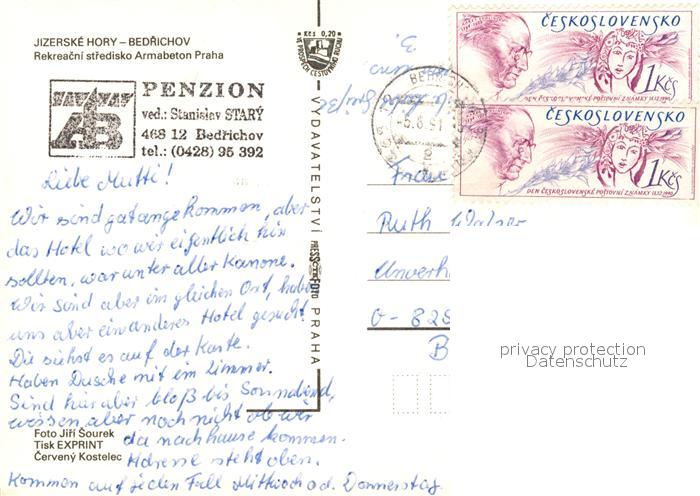 JIZERSKÉ HORY – BEDŘICHOV
Rekreační středisko Armabeton Praha
PENZION
ved.: Stanislav STARÝ
468 12 Bedřichov
tel.: (0428) 95 392
Liebe Mutti!
Wir sind gut angekommen, aber
das Hotel wo wir eigentlich hin
sollten, war unter aller Kanone.
Wir sind aber im gleichen Ort, haben
uns aber ein anderes Hotel gesucht.
Du siehst es auf der Karte.
Haben Dusche mit im Zimmer.
Sind hier aber bloß bis Sonnabend,
wissen aber noch nicht ob wir
da nachhause kommen.
Adresse steht oben.
Kommen auf jeden Fall Mittwoch od. Donnerstag.
Foto Jiří Šourek
Tisk EXPRINT
Červený Kostelec
Kčs 0,20
VE PROSPĚCH CESTOVNÍHO RUCHU
VYDAVATELSTVÍ PRESSFOTO PRAHA
ČESKOSLOVENSKO
1 Kčs
ČESKOSLOVENSKO
1 Kčs
DEN ČESKOSLOVENSKÉ POŠTOVNÍ ZNÁMKY 18.12.1990
Frau
Ruth
Unverh
O-825
privacy protection
Datenschutz